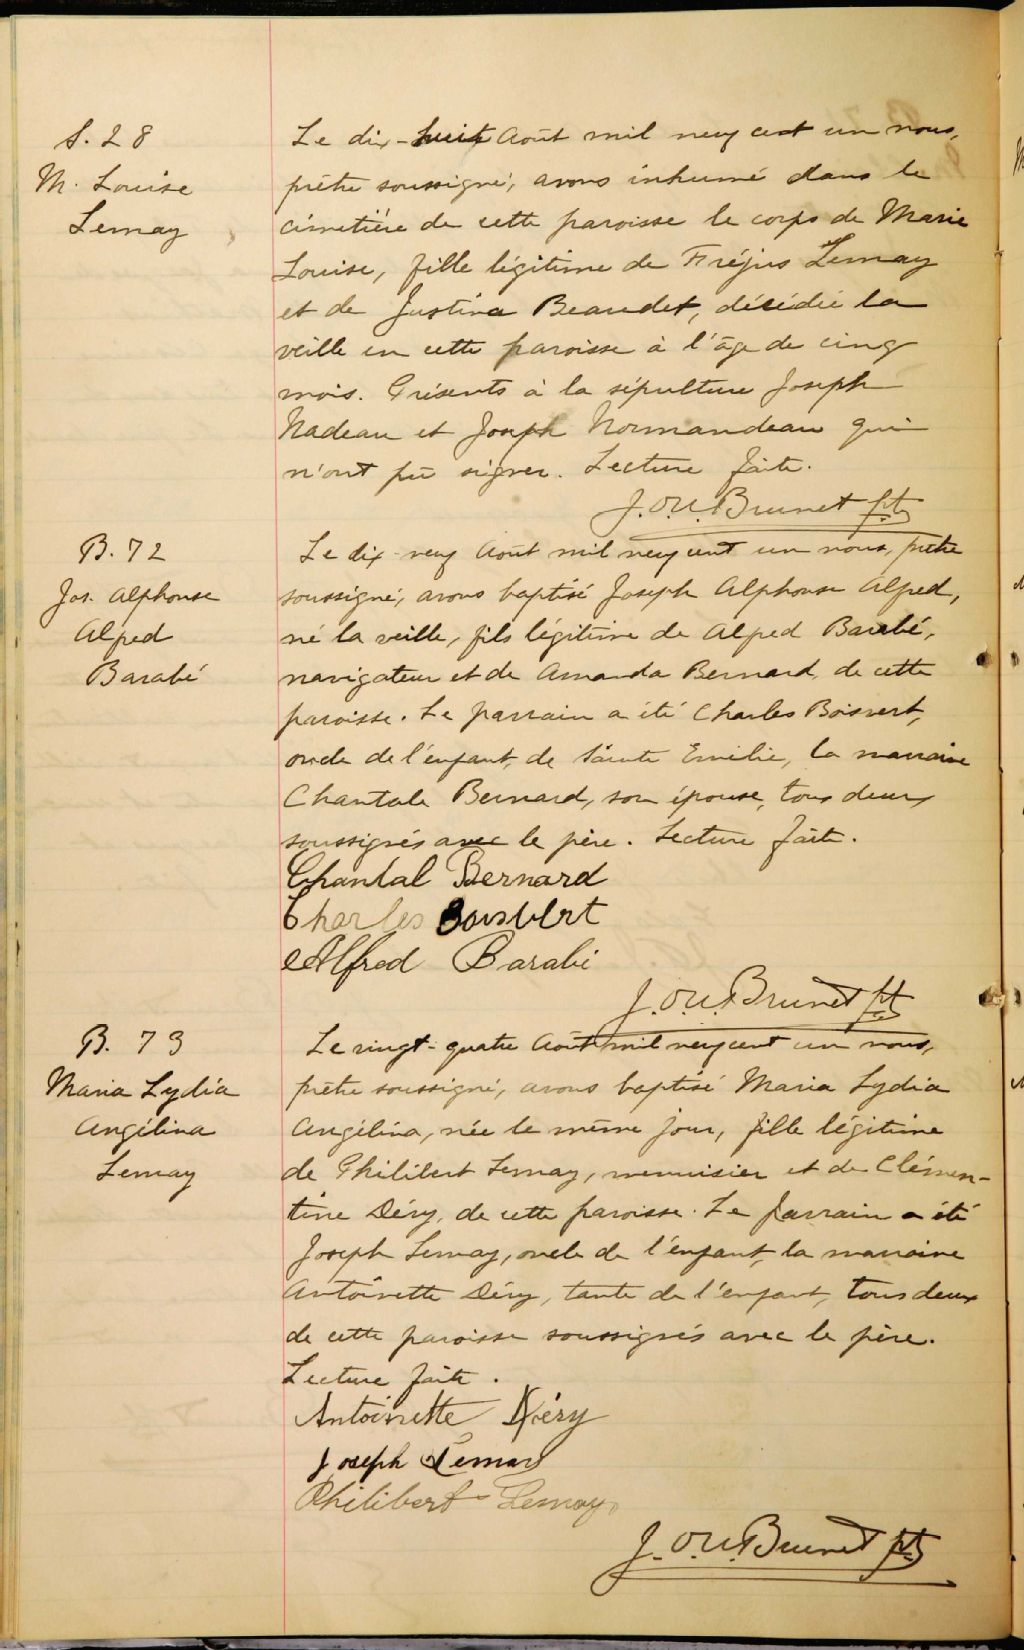 S. 28
M. Louise
Lemay
Le dix-huit Août mil neuf cent un nous,
prêtre soussigné, avons inhumé dans le
cimetière de cette paroisse le corps de Marie
Louise, fille légitime de Fréjus Lemay
et de Justina Beaudet, décédée la
veille en cette paroisse à l'âge de cinq
mois. Présents à la sépulture Joseph
Nadeau et Joseph Normandeau qui
n'ont pu signer. Lecture faite.
J. O. U. Brunet ptre
B. 72
Jos. Alphonse
Alfred
Barabé
Le dix-neuf Août mil neuf cent un nous, prêtre
soussigné, avons baptisé Joseph Alphonse Alfred,
né la veille, fils légitime de Alfred Barabé,
navigateur et de Amanda Bernard, de cette
paroisse. Le parrain a été Charles Boisvert,
oncle de l'enfant, de Sainte Emilie, la marraine
Chantale Bernard, son épouse, tous deux
soussignés avec le père. Lecture faite.
Chantal Bernard
Charles Boisvert
Alfred Barabé
J. O. U. Brunet ptre
B. 73
Maria Lydia
Angélina
Lemay
Le vingt-quatre Août mil neuf cent un nous,
prêtre soussigné, avons baptisé Maria Lydia
Angélina, née le même jour, fille légitime
de Philibert Lemay, menuisier et de Clémen-
tine Déry, de cette paroisse. Le parrain a été
Joseph Lemay, oncle de l'enfant, la marraine
Antoinette Déry, tante de l'enfant, tous deux
de cette paroisse soussignés avec le père.
Lecture faite.
Antoinette Déry
Joseph Lemay
Philibert Lemay
J. O. U. Brunet ptre